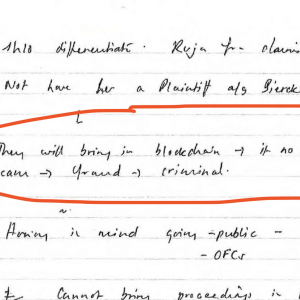 differentiate. Ruja from
Not have her a Plaintiff a/g
They will bring in blockchain → if no
scam → fraud → criminal.
Having in mind going - public -
- OFCs
Cannot bring proceedings in